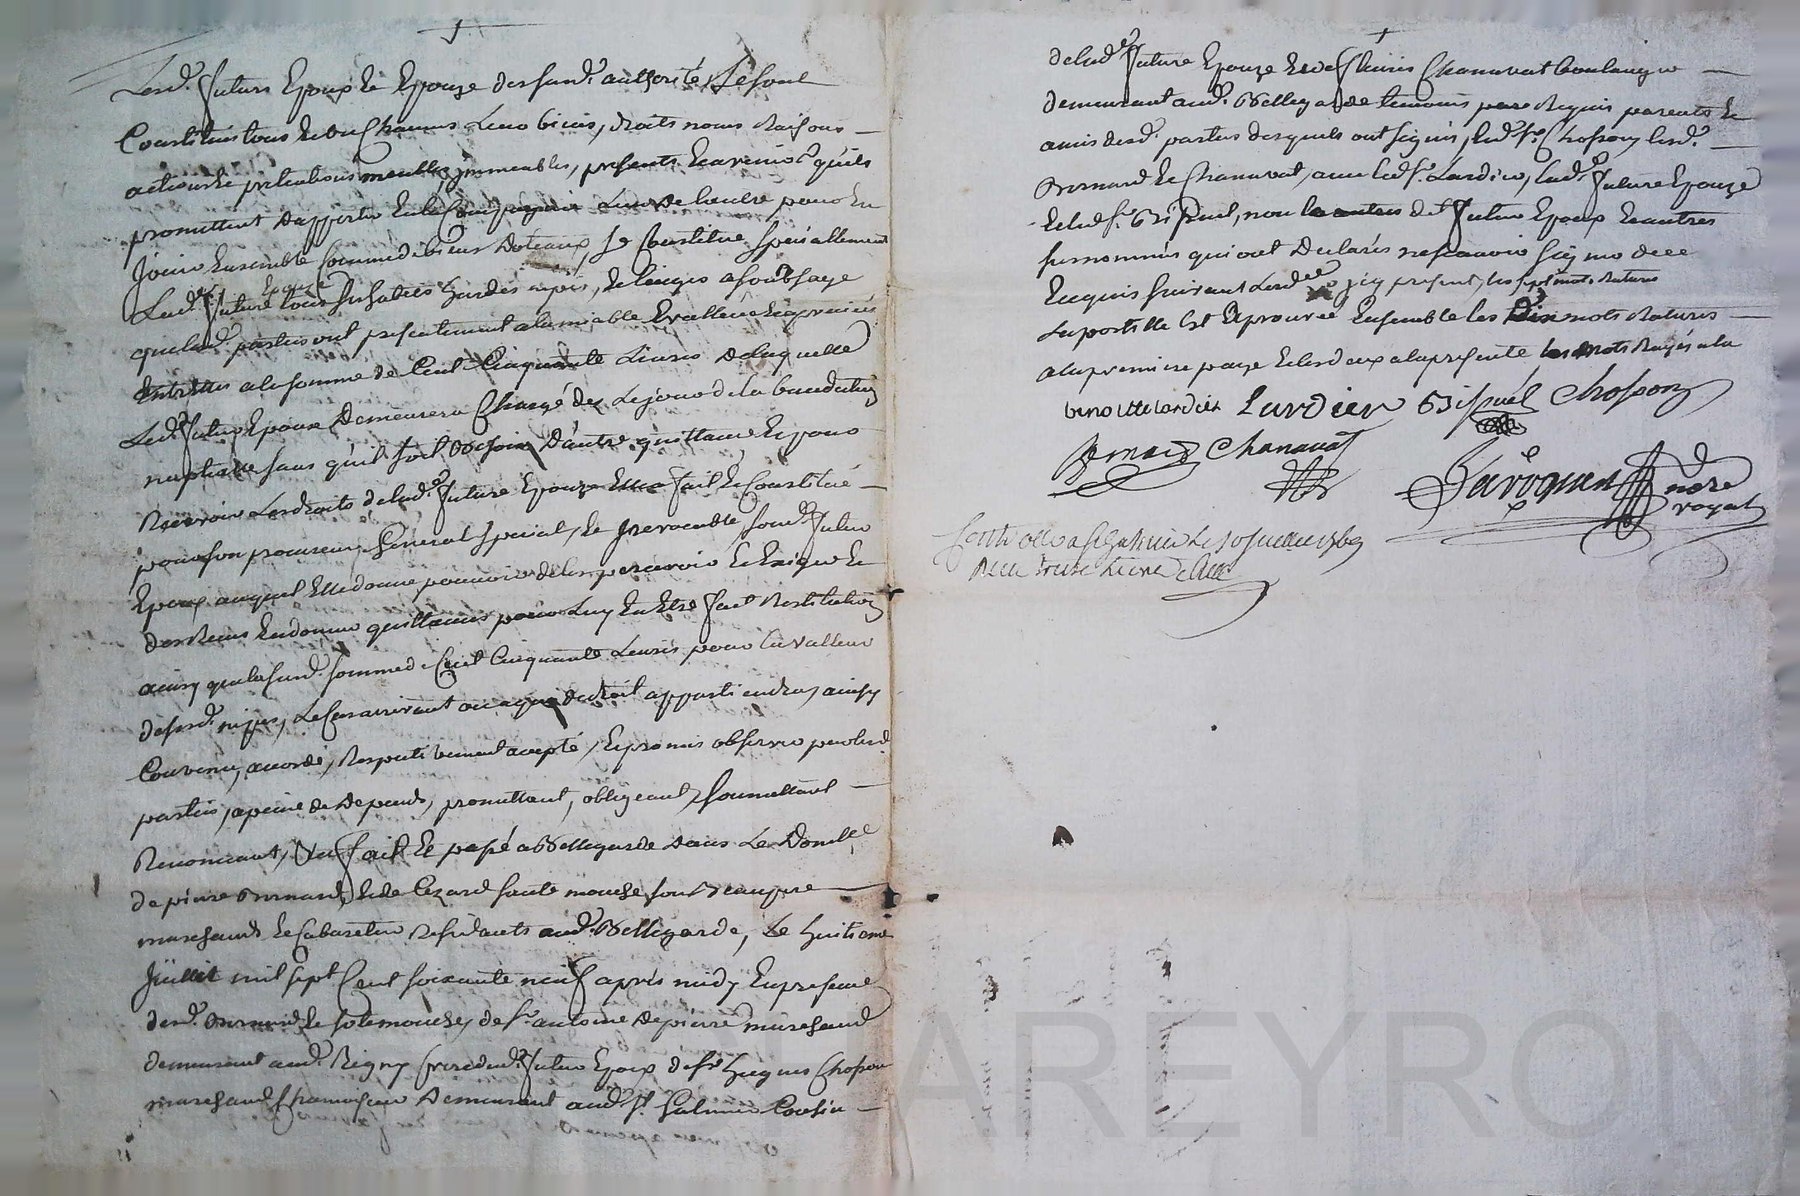 Lesd. futurs Epoux et Epouze desd. authorités Se sont
Constitués tous et un Chacuns Leurs biens, droits noms Raisons
actions et pretentions meubles, immeubles, presents et avenirs qu'ils
promettent d'apporter En la Compagnie L'un de l'autre pour En
Jouir Ensemble comme de biens doteaux, Se Constitue specialement
Lad. future Epouze tous ses habits hardes nipes, et linges a son usage
que lesd. parties ont presentement a l'amiable Evallués et apreciés
entr'elles a la somme de Cent Cinquante Livres de laquelle
Led. futur Epoux demeurera Chargé des Le jour de la benediction
nuptialle sans qu'il soit Besoin d'autre quittance Et pour
Recevoir Les droits de lad. future Epouze Elle a fait et Constitué
pour son procureur General special, et irrevocable, sond. futur
Epoux auquel Elle donne pouvoir de les percevoir et Exiger et
des Reçus En donner quittances pour Luy En Etre fait Restitution
ainsy que la susd. somme de Cent Cinquante Livres pour la valleur
desesd. nipes, Le Cas arrivant ou a qui de droit appartiendra, ainsy
Convenu, accordé, Respectivement accepté, Et promis observer par lesd.
parties, a peine de depends, promettant, obligeant, soumettant
Renonceant, &c fait Et passé a Bellegarde dans Le Domlle
de pierre Bernard, et de Cezard sautemouche son Beaupere
marchands et Cabaretier Residants aud. Bellegarde, Le huitieme
Juillet mil sept Cent soixante neuf apres midy En presence
desd. Bernard et sotemouche, de sr. antoine depierre marchand
demeurant aud. Rigny du futur Epoux de sr. hugues Chosson
marchand Chamoiseur Demeurant aud. st. Galmier Cousin
de lad. future Epouze Et de Chanavat boulanger
demeurant aud. Bellegarde temoins par Requis parents et
amis desd. parties desquels ont signés, led. sr. Chosson, lesd.
Bernard et Chanavat, avec led. sr. Lardier, lad. future Epouze
et led. sr. Bispuel, non led. futur Epoux Et autres
surnommés qui ont Declarés ne sçavoir signer de ce
Enquis suivant Lord.ce
La postille Est Aprouvée Ensemble les Dix mots Raturés
a la premiere page Et les deux a la presente les mots Rayés a la
benoitte lardier Lardier Bispuel Chosson
Bernard Chanavat
Baroquin nore
royal
Controllé a St. Galmier Le 20 Juillet 1769
Reçu treize Livres